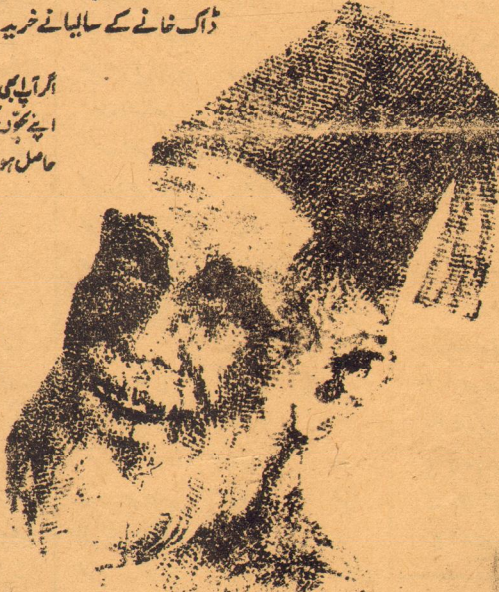 ڈاک خانے کے سالیانے خرید
اگر آپ ابھی
اپنے بچوں
حاصل ہو